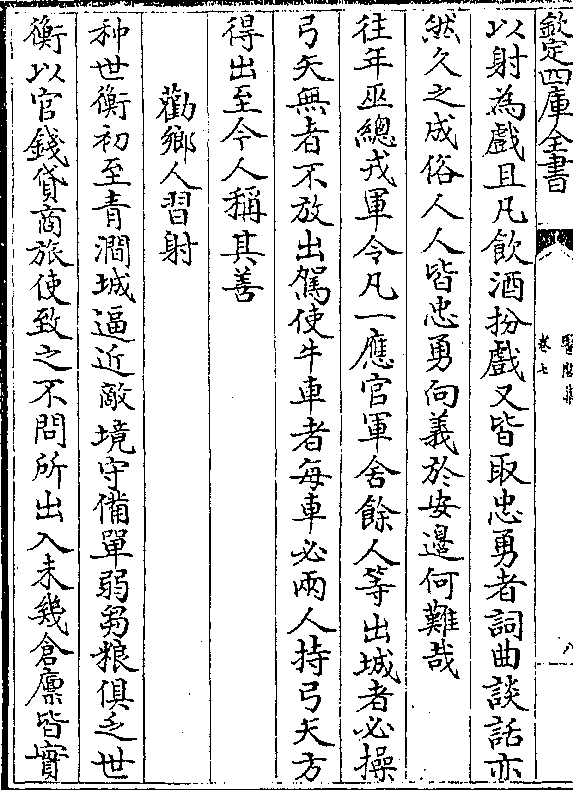 欽定四庫全書
醫閭集
卷七
八
以射為戲且凡飲酒扮戲又皆取忠勇者詞曲談話亦
然久之成俗人人皆忠勇向義於安邊何難哉
往年巫總戎軍令凡一應官軍舍餘人等出城者必操
弓矢無者不放出駕使牛車者每車必兩人持弓矢方
得出至今人稱其善
勸鄉人習射
种世衡初至青澗城逼近敵境守備單弱芻粮俱乏世
衡以官錢貸商旅使致之不問所出入未幾倉廩皆實